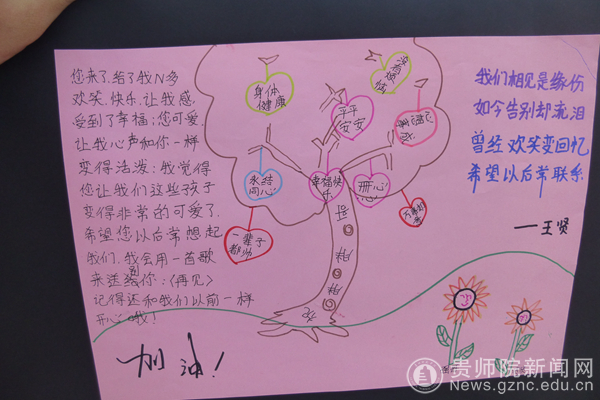 您来了,给了我N多
欢笑.快乐.让我感
受到了幸福;您可爱.
让我心声和你一样
变得活泼;我觉得
您让我们这些孩子
变得非常的可爱了.
希望您以后常想起
我们.我会用一首歌
来送给你:《再见》
记得还和我们以前一样
开心哦!
加油!
身体
健康
没有
烦恼
平平
安安
永结
同心
幸福快
乐
开心
一辈子
都帅
我们相见是缘份
如今告别却流泪
曾经欢笑变回忆
希望以后常联系
——王贤
贵师院新闻网
News.gznc.edu.cn